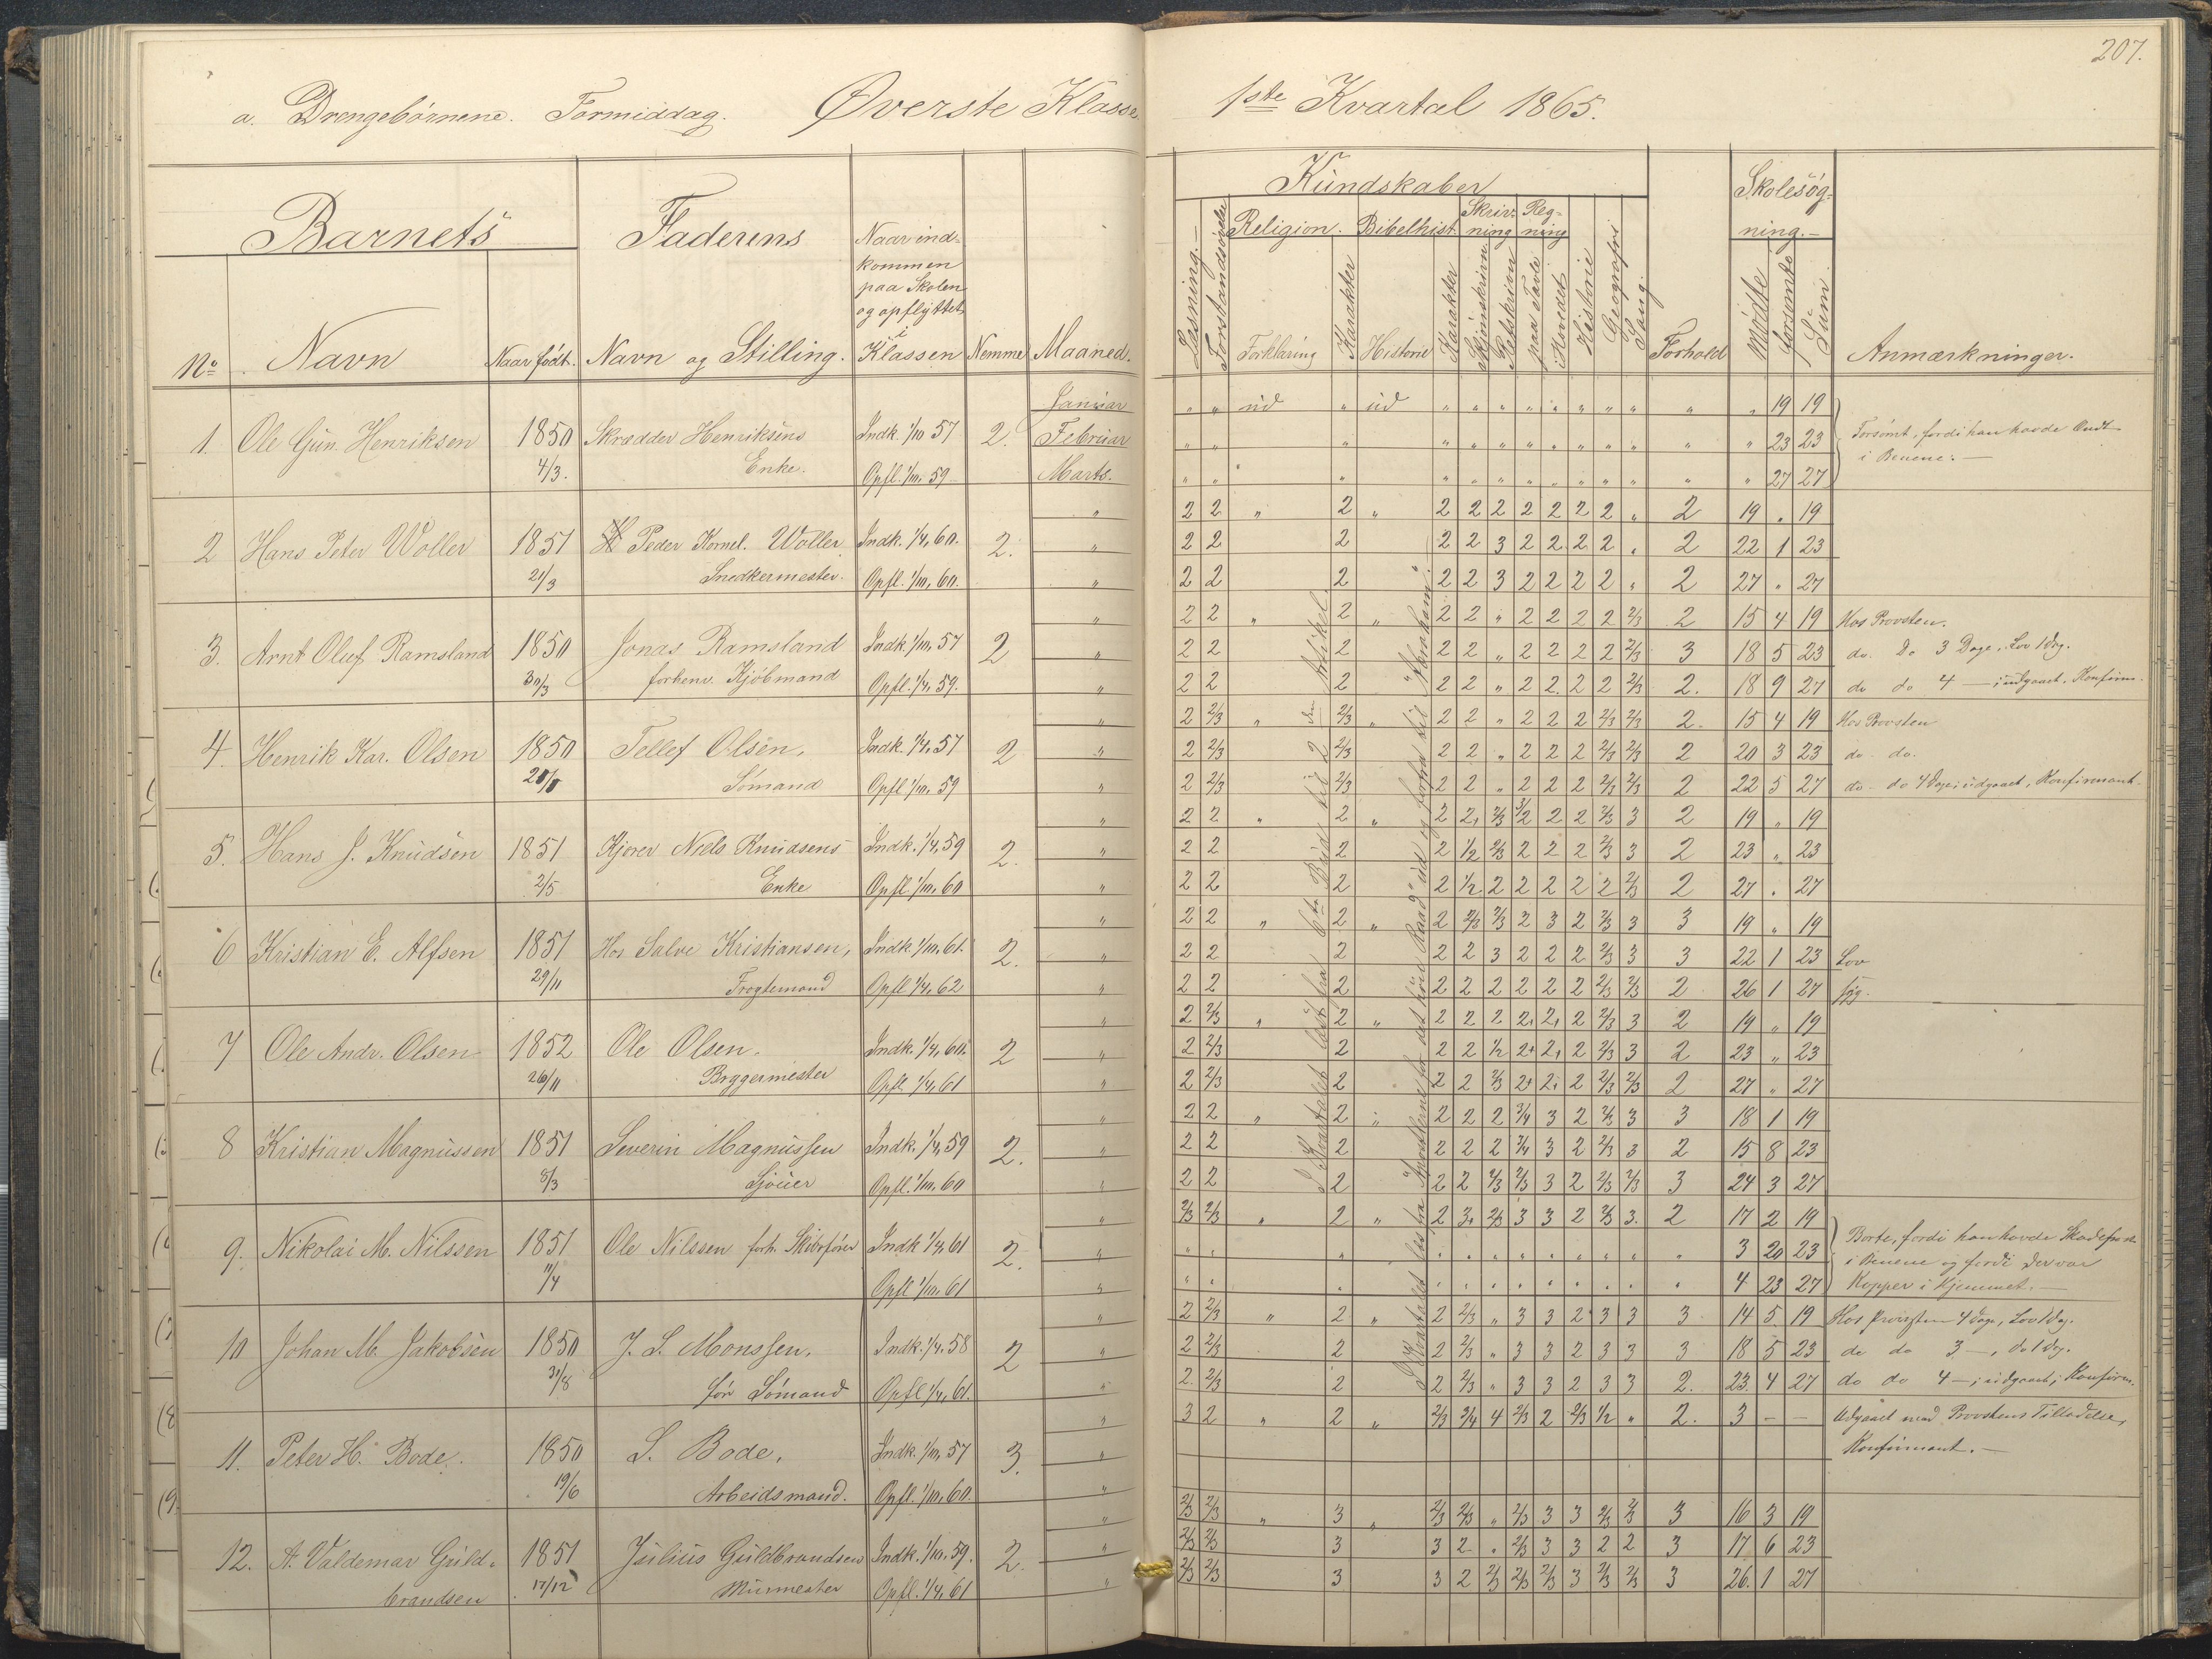 207.
a. Drengebörnene. Formiddag. Øverste Klasse
1ste Kvartal 1865.
Barnets
Faderens
Naar ind-
kommen
paa Skolen
og opflyttet
i
Klassen
No Navn Naar födt. Navn og Stilling. Nemme Maaned.
Kundskaber
Skolesög-
ning.-
Religion. Bibelhist. Skriv-
ning Reg-
ning
Læsning.- Forstandsövelse Forklaring Karakter Historie Karakter Skjönskrivn Retskrivn paa Tavle Hovedet Historie Geografi Sang. Forhold Mödte forsömte Sum Anmærkninger.
Januar
" " ud " ud " " " " " " " " " " 19 19
1. Ole Gun. Henriksen 1850 Skrædder Henriksens Indk. 1/10 57 2. Februar
" " " " " " " " " " " " " 23 23 Forsömt, fordi han havde Ondt
4/3. Enke. Opfl. 1/10. 59 Marts.
i Benene.-
" " " " " " " " " " " " " 27 27
" 2 2 " 2 " 2 2 2 2 2 2 2 " 2 19 " 19
2 Hans Peter Woller 1851 Peder Kornel. Woller Indk. 1/4, 60. 2. "
2 2 2 2 2 3 2 2 2 2 " 2 22 1 23
21/3 Snedkermester. Opfl. 1/10, 60. "
2 2 2 2 2 3 2 2 2 2 " 2 27 " 27
" 2 2 " 2 " 2 2 " 2 2 2 2 2/3 2 15 4 19 Hos Provsten.
3. Arnt Oluf Ramsland 1850 Jonas Ramsland Indk. 1/10, 57 2 "
2 2 2 2 2 " 2 2 2 2 2/3 3 18 5 23 do. do 3 Dage, Lov 1 dag.
30/3 forhenv. Kjöbmand Opfl. 1/4, 59. "
2 2 2 2 2 " 2 2 2 2 2/3 2. 18 9 27 do do 4 — ; udgaaet. Konfirm.
" 2 2/3 " 2/3 " 2 2 " 2 2 2 2/3 2/3 2. 15 4 19 Hos Provsten
4. Henrik Kar. Olsen 1850 Tellef Olsen, Indk. 1/4, 57 2 "
2 2/3 2/3 2 2 " 2 2 2 2/3 2/3 2 20 3 23 do - do.
Sömand Opfl. 1/10, 59 "
2 2/3 2/3 2 2 " 2 2 2 2/3 2/3 2 22 5 27 do - do 4 Dage; udgaaet, Konfirmant.
" 2 2 " 2 " 2 2, 2/3 3/2 2 2 2/3 3 2 19 " 19
5. Hans J. Knudsen 1851 Kjörer Niels Knudsens Indk. 1/4, 59 2. "
2 2 2 2 1/2 2/3 2 2 2 2/3 3 2 23 " 23
2/5 Enke Opfl. 1/10, 60 "
2 2 2 2 1/2 2 2 2 2 2 2/3 2 27 " 27
" 2 2 " 2 " 2 2/3 2/3 2 3 2 2/3 3 3 19 " 19
6 Kristian E. Alfsen 1851 Hos Salve Kristiansen, Indk 1/10. 61. 2. "
2 2 2 2 2 3 2 2 2 2/3 3 3 22 1 23 Lov
29/11 Fragtemand Opfl 1/4, 62 "
2 2 2 2 2 2 2 2 2 2/3 2/3 2 26 1 27 syg.
" 2 2/3 " 2 " 2 2 2 2, 2, 2 2/3 3 2 19 " 19
7 Ole Andr. Olsen 1852 Ole Olsen. Indk. 1/4, 60. 2 "
2 2/3 2 2 2 1/2 2+ 2, 2 2/3 3 2 23 " 23
26/11 Bryggermester Opfl. 1/4, 61 "
2 2/3 2 2 2 2/3 2+ 2, 2 2/3 2/3 2 27 " 27
" 2 2 " 2 " 2 2 2 3/4 3 2 2/3 3 3 18 1 19
8 Kristian Magnussen 1851 Severin Magnussen Indk. 1/4, 59 2. "
2 2 2 2 2 2 3/4 3 2 2/3 3 2 15 8 23
8/3 Sjöuer Opfl. 1/10. 60 "
2 2 2 2 2 2/3 2/3 3 2 2/3 2/3 3 24 3 27
" 2/3 2/3 " 2 " 2 3, 2/3 3 3 2 2/3 3. 2 17 2 19
9. Nikolai M. Nilssen 1851 Ole Nilssen forh. Skibsförer Indk 1/4, 61 2. "
" " " " " " " " " " " " 3 20 23 Borte, fordi han havde Skade
11/4 Opfl 1/10. 61 "
i Benene og fordi der var
" " " " " " " " " " " " 4 23 27 Kopper i Hjemmet.-
" 2 2/3 " 2 " 2 2/3 " 3 3 2 3 3 3 14 5 19 Hos provsten 4 dage, Lov 1 dag.
10 Johan M. Jakobsen 1850 J. S. Monssen, Indk. 1/4. 58 2 "
2 2/3 2 2 2/3 " 3 3 2 3 3 3 18 5 23 do do 3 —, do 1 dag.
31/8 för Sömand Opfl 1/4, 61. "
2. 2/3 2 2 2/3 " 3 3 2 3 3 2. 23. 4 27 do do 4 — ; udgaaet; Konfirm.
" 3 2 " 2 " 2/3 3/4 4 2/3 2 2/3 1/2 " 2. 3 - - Udgaaet med Provstens Tilladelse,
11. Peter H. Bode. 1850 S. Bode, Indk. 1/10, 57 3. "
Konfirmant.-
19/6 Arbeidsmand. Opfl. 1/10, 60. "
" 2/3 2/3 " 3 " 2/3 2/3 " 2/3 3 3 2/3 2/3 3 16 3 19
12. A. Valdemar Guld- 1851 Julius Guldbrandsen Indk. 1/10, 59. 2. "
2/3 2/3 3 3 2 " 2/3 3 3 2 2 3 17 6 23
brandsen 17/12 Murmester Opfl. 1/4, 61 "
2/3 2/3 3 3 2 2/3 2/3 2/3 3 2/3 2/3 3 26. 1 27
I Kvartalet læst fra 6te Bud til 2den Artikel.
I Kvartalet læs fra "Apostlerne for det höie Raad" ud og forfra til "Abraham".